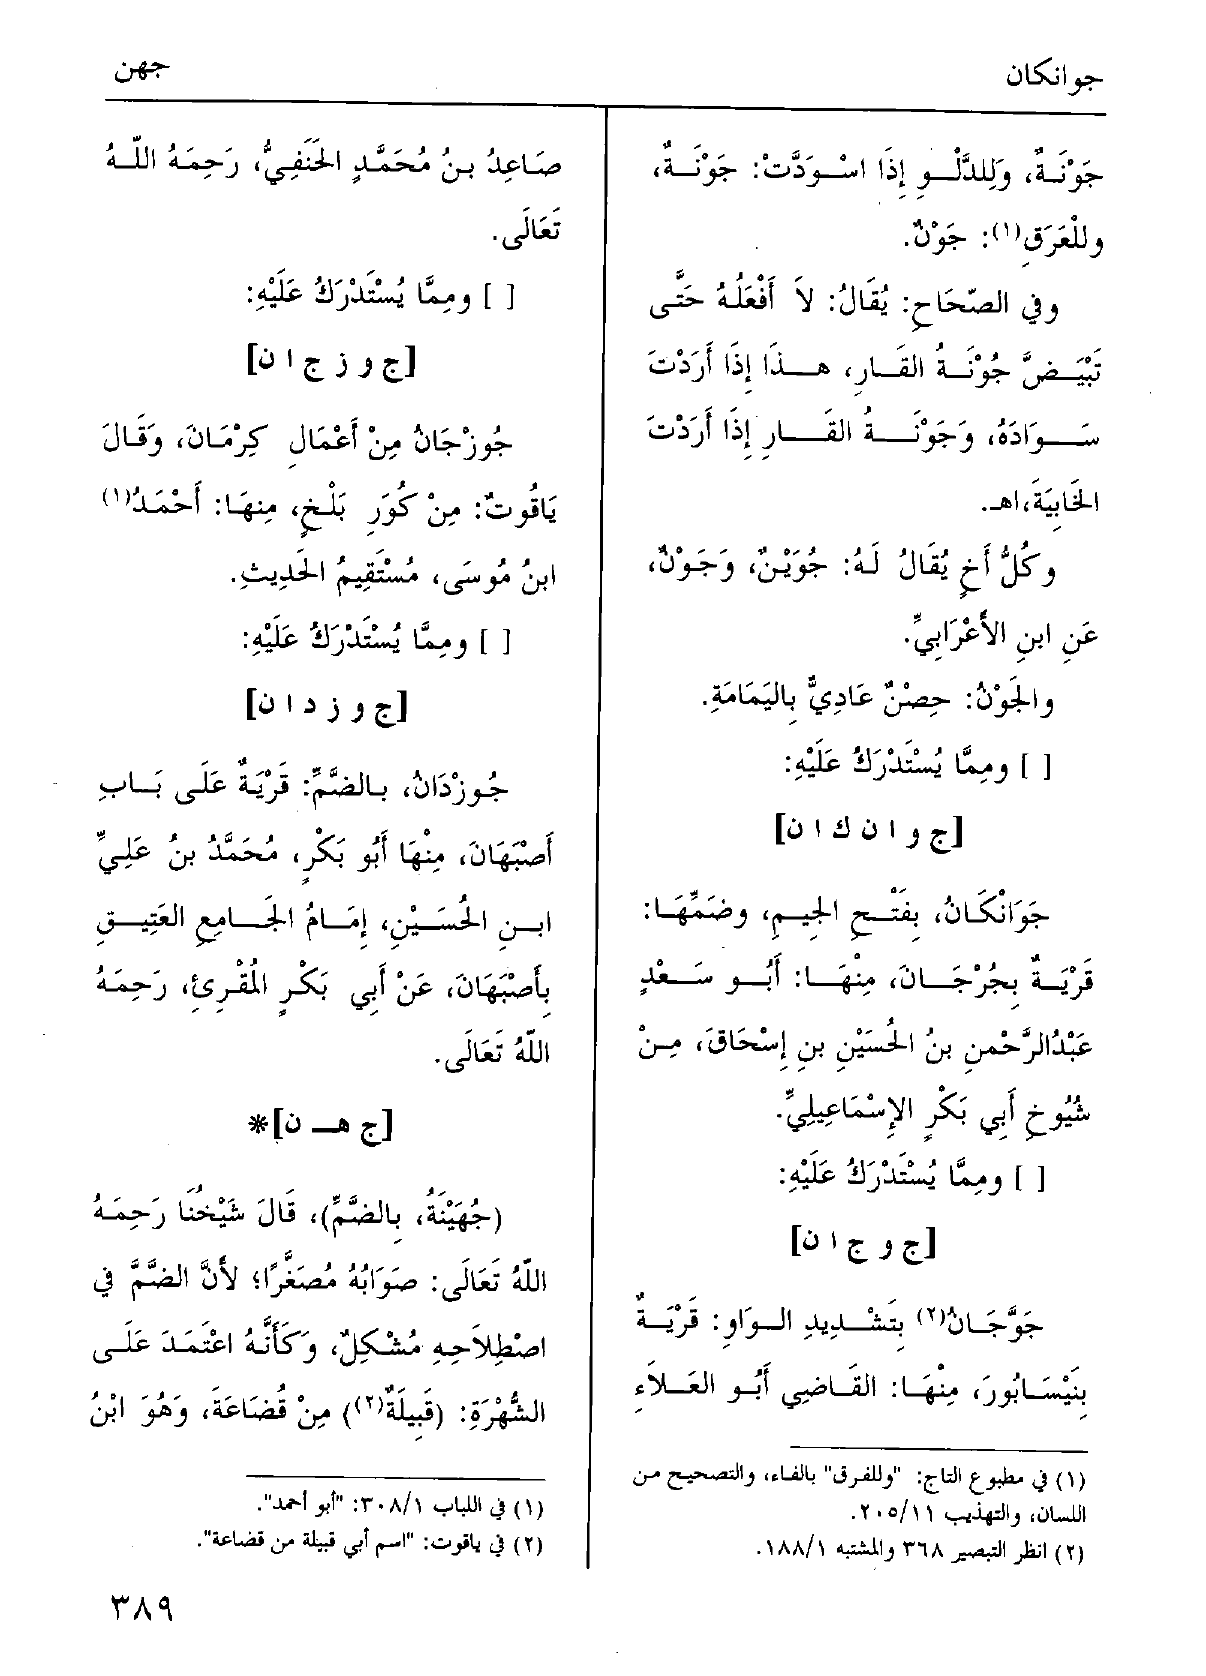 جوانكان
جهن
جَوْنَةٌ، وَلِلدَّلْوِ إِذَا اسْوَدَّتْ: جَوْنَةٌ،
ولِلْعَرَقِ(١): جَوْنٌ.
وفي الصّحَاحِ: يُقَالُ: لاَ أَفْعَلُهُ حَتَّى
تَبْيَضَّ جُوْنَةُ القَارِ، هذَا إِذَا أَرَدْتَ
سَوَادَهُ، وَجَوْنَةُ القَارِ إِذَا أَرَدْتَ
الخَابِيَةَ،اهـ.
وكُلُّ أَخٍ يُقَالُ لَهُ: جُوَيْنٌ، وَجَوْنٌ،
عَنِ ابنِ الأَعْرَابِيِّ.
والجَوْنُ: حِصْنٌ عَادِيٌّ بِاليَمَامَةِ.
[ ] ومِمَّا يُسْتَدْرَكُ عَلَيْهِ:
[ج و ا ن ك ا ن]
جَوَانْكَانُ، بِفَتْحِ الجِيمِ، وضَمِّهَا:
قَرْيَةٌ بِجُرْجَانَ، مِنْهَا: أَبُو سَعْدٍ
عَبْدُالرَّحْمنِ بنُ الحُسَيْنِ بنِ إِسْحَاقَ، مِنْ
شُيُوخِ أَبِي بَكْرٍ الإِسْمَاعِيلِيِّ.
[ ] ومِمَّا يُسْتَدْرَكُ عَلَيْهِ:
[ج و ج ا ن]
جَوَّجَانُ(٢) بِتَشْدِيدِ الوَاوِ: قَرْيَةٌ
بِنَيْسَابُورَ، مِنْهَا: القَاضِي أَبُو العَلاَءِ
(١) في مطبوع التاج: "وللفرق" بالفاء، والتصحيح من
اللسان، والتهذيب ٢٠٥/١١.
(٢) انظر التبصير ٣٦٨ والمشتبه ١٨٨/١.
صَاعِدُ بنُ مُحَمَّدٍ الحَنَفِيُّ، رَحِمَهُ اللّهُ
تَعَالَى.
[ ] ومِمَّا يُسْتَدْرَكُ عَلَيْهِ:
[ج و ز ج ا ن]
جُوزْجَانُ مِنْ أَعْمَالِ كِرْمَانَ، وَقَالَ
يَاقُوتٌ: مِنْ كُوَرِ بَلْخٍ، مِنهَا: أَحْمَدُ(١)
ابنُ مُوسَى، مُسْتَقِيمُ الحَدِيثِ.
[ ] ومِمَّا يُسْتَدْرَكُ عَلَيْهِ:
[ج و ز د ا ن]
جُوزْدَانُ، بِالضَّمِّ: قَرْيَةٌ عَلَى بَابِ
أَصْبَهَانَ، مِنْهَا أَبُو بَكْرٍ، مُحَمَّدُ بنُ عَلِيِّ
ابنِ الحُسَيْنِ، إِمَامُ الجَامِعِ العَتِيقِ
بِأَصْبَهَانَ، عَنْ أَبي بَكْرٍ المُقْرِئِ، رَحِمَهُ
اللّهُ تَعَالَى.
[ج هـ ن]*
(جُهَيْنَةُ، بِالضَّمِّ)، قَالَ شَيْخُنَا رَحِمَهُ
اللّهُ تَعَالَى: صَوَابُهُ مُصَغَّرًا؛ لأَنَّ الضَّمَّ في
اصْطِلاَحِهِ مُشْكِلٌ، وَكَأَنَّهُ اعْتَمَدَ عَلَى
الشُّهْرَةِ: (قَبِيلَةٌ(٢)) مِنْ قُضَاعَةَ، وَهُوَ ابْنُ
(١) في اللباب ٣٠٨/١: "أبو أحمد".
(٢) في ياقوت: "اسم أبي قبيلة من قضاعة".
٣٨٩